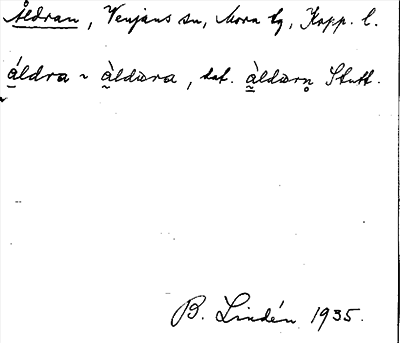 Åldran, Venjans sn, Mora tg, Kopp. l.
áldra ~ àldωra, dat. àldωrn̥ Stutt.
B. Lindén 1935.